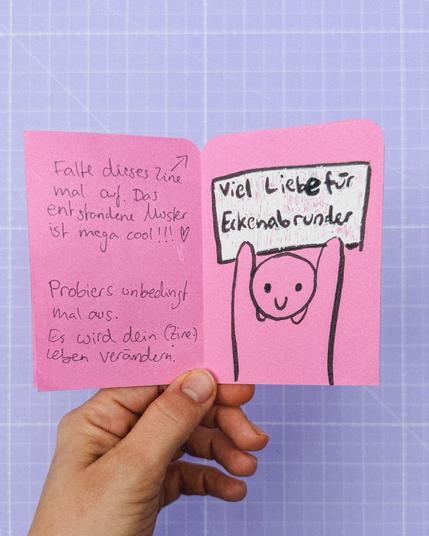 Falte dieses Zine
mal auf. Das
entstandene Muster
ist mega cool!!! ♡
Probiers unbedingt
mal aus.
Es wird dein (Zine-)
Leben verändern.
Viel Liebe für
Eckenabrunder